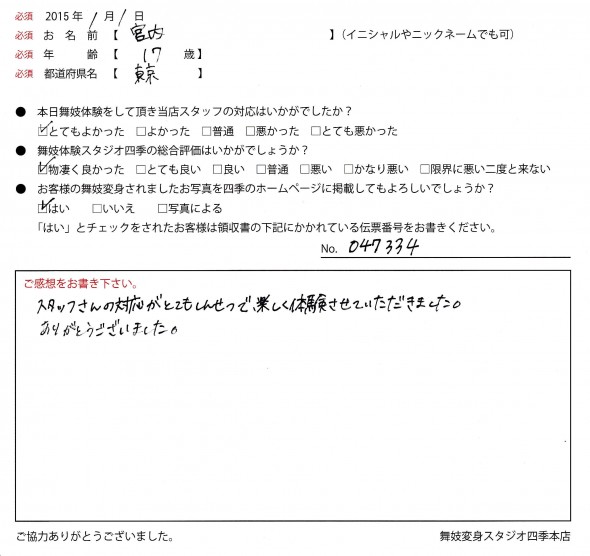 必須 2015年 1月 1日
必須 お名前【 宮内 】(イニシャルやニックネームでも可)
必須 年 齢【 17 歳】
必須 都道府県名【 東京 】
● 本日舞妓体験をして頂き当店スタッフの対応はいかがでしたか?
☑とてもよかった □よかった □普通 □悪かった □とても悪かった
● 舞妓体験スタジオ四季の総合評価はいかがでしょうか?
☑物凄く良かった □とても良い □良い □普通 □悪い □かなり悪い □限界に悪い二度と来ない
● お客様の舞妓変身されましたお写真を四季のホームページに掲載してもよろしいでしょうか?
☑はい □いいえ □写真による
「はい」とチェックをされたお客様は領収書の下記にかかれている伝票番号をお書きください。
No. 047334
ご感想をお書き下さい。
スタッフさんの対応がとてもしんせつで、楽しく体験させていただきました。
ありがとうございました。
ご協力ありがとうございました。 舞妓変身スタジオ四季本店